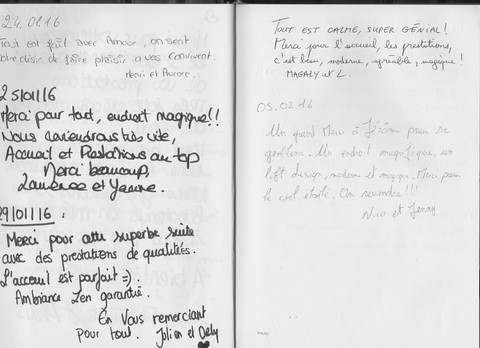 24.01.16
Tout est fait avec Amour, on sent
votre désir de faire plaisir à vos convives.
Merci et Aurore.
25/01/16
Merci pour tout, endroit magique!!
Nous reviendrons très vite,
Accueil et Prestations au top
Merci beaucoup,
Laurence et
29/01/16 :
Merci pour cette superbe suite
avec des prestations de qualités.
L'accueil est parfait =).
Ambiance Zen garantie.
En Vous remerciant
Pour tout. Julien et
TOUT EST CALME, SUPER GÉNIAL!
Merci pour l'accueil, les prestations,
c'est bien, moderne, agréable, magique!
MAGALY et L.
05.02.16
Un grand Merci à Jérôme pour sa
gentillesse. Un endroit magnifique, un
loft design, moderne et magique. Merci pour
le ciel étoilé. On reviendra!!!
Nico et Jenny